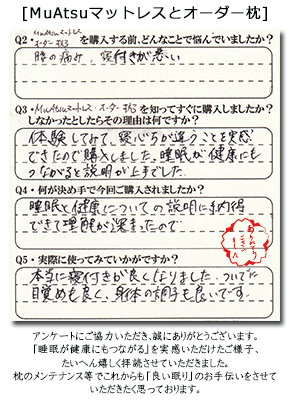 [MuAtsuマットレスとオーダー枕]
Q2・MuAtsuマットレス オーダー枕 を購入する前、どんなことで悩んでいましたか？
腰の痛み、寝付きが悪い
Q3・MuAtsuマットレス・オーダー枕を知ってすぐに購入しましたか？
しなかったとしたらその理由は何ですか？
体験してみて、寝心ちが違うことを実感
できたので購入しました。睡眠が健康にも
つながると説明が上手でした。
Q4・何が決め手で今回ご購入されましたか？
睡眠と健康についての説明に納得
できて理解が深まったので
Q5・実際に使ってみていかがですか？
本当に寝付きが良くなりました。ついでに
目覚めも良く、身体の調子も良いです。
アンケートにご協力いただき、誠にありがとうございます。
「睡眠が健康にもつながる」を実感いただけたご様子、
たいへん嬉しく拝読させていただきました。
枕のメンテナンス等でこれからも「良い眠り」のお手伝いをさせて
いただきたく思っております。